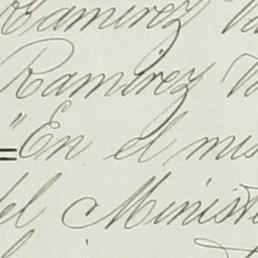 Ramirez Va
Ramirez Va
"En el mis
del Ministe